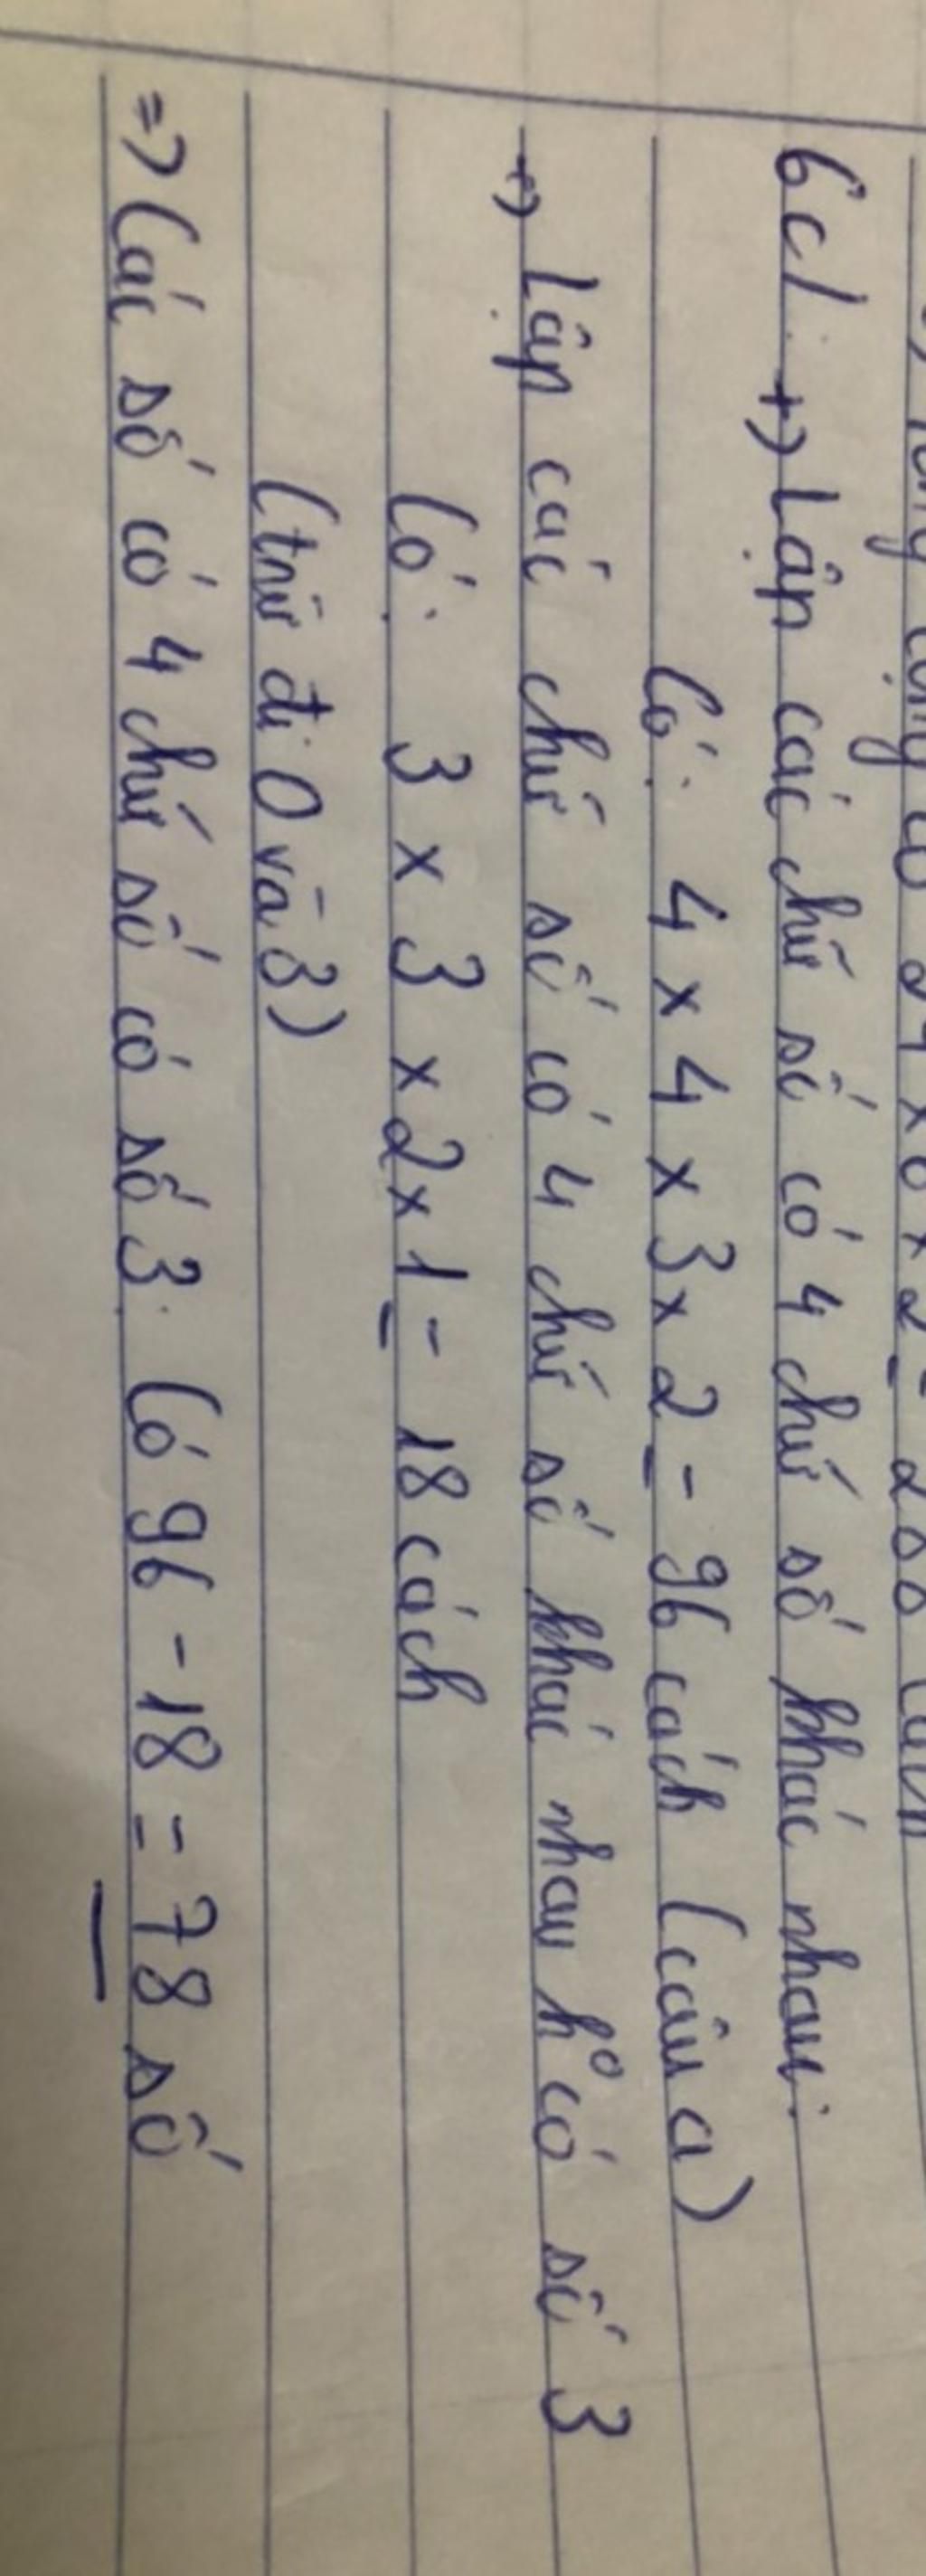 6c/. +) Lập các chữ số có 4 chữ số khác nhau:
Có: 4 x 4 x 3 x 2 = 96 cách (câu a)
+) Lập các chữ số có 4 chữ số khác nhau k° có số 3
Có: 3 x 3 x 2 x 1 = 18 cách
(trừ đi 0 và 3)
=) Các số có 4 chữ số có số 3: Có 96 - 18 = 78 số